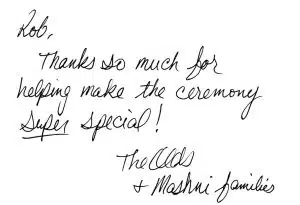 Rob,
Thanks so much for
helping make the ceremony
super special!
The
& Mashni families